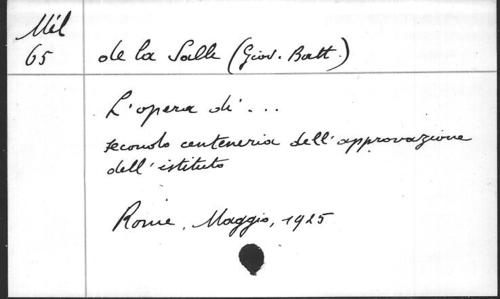 Mél
65
de la Salle (Giov. Batt.)
L'opera di ...
secondo centenario dell'approvazione
dell'istituto
Rome, Maggio, 1925